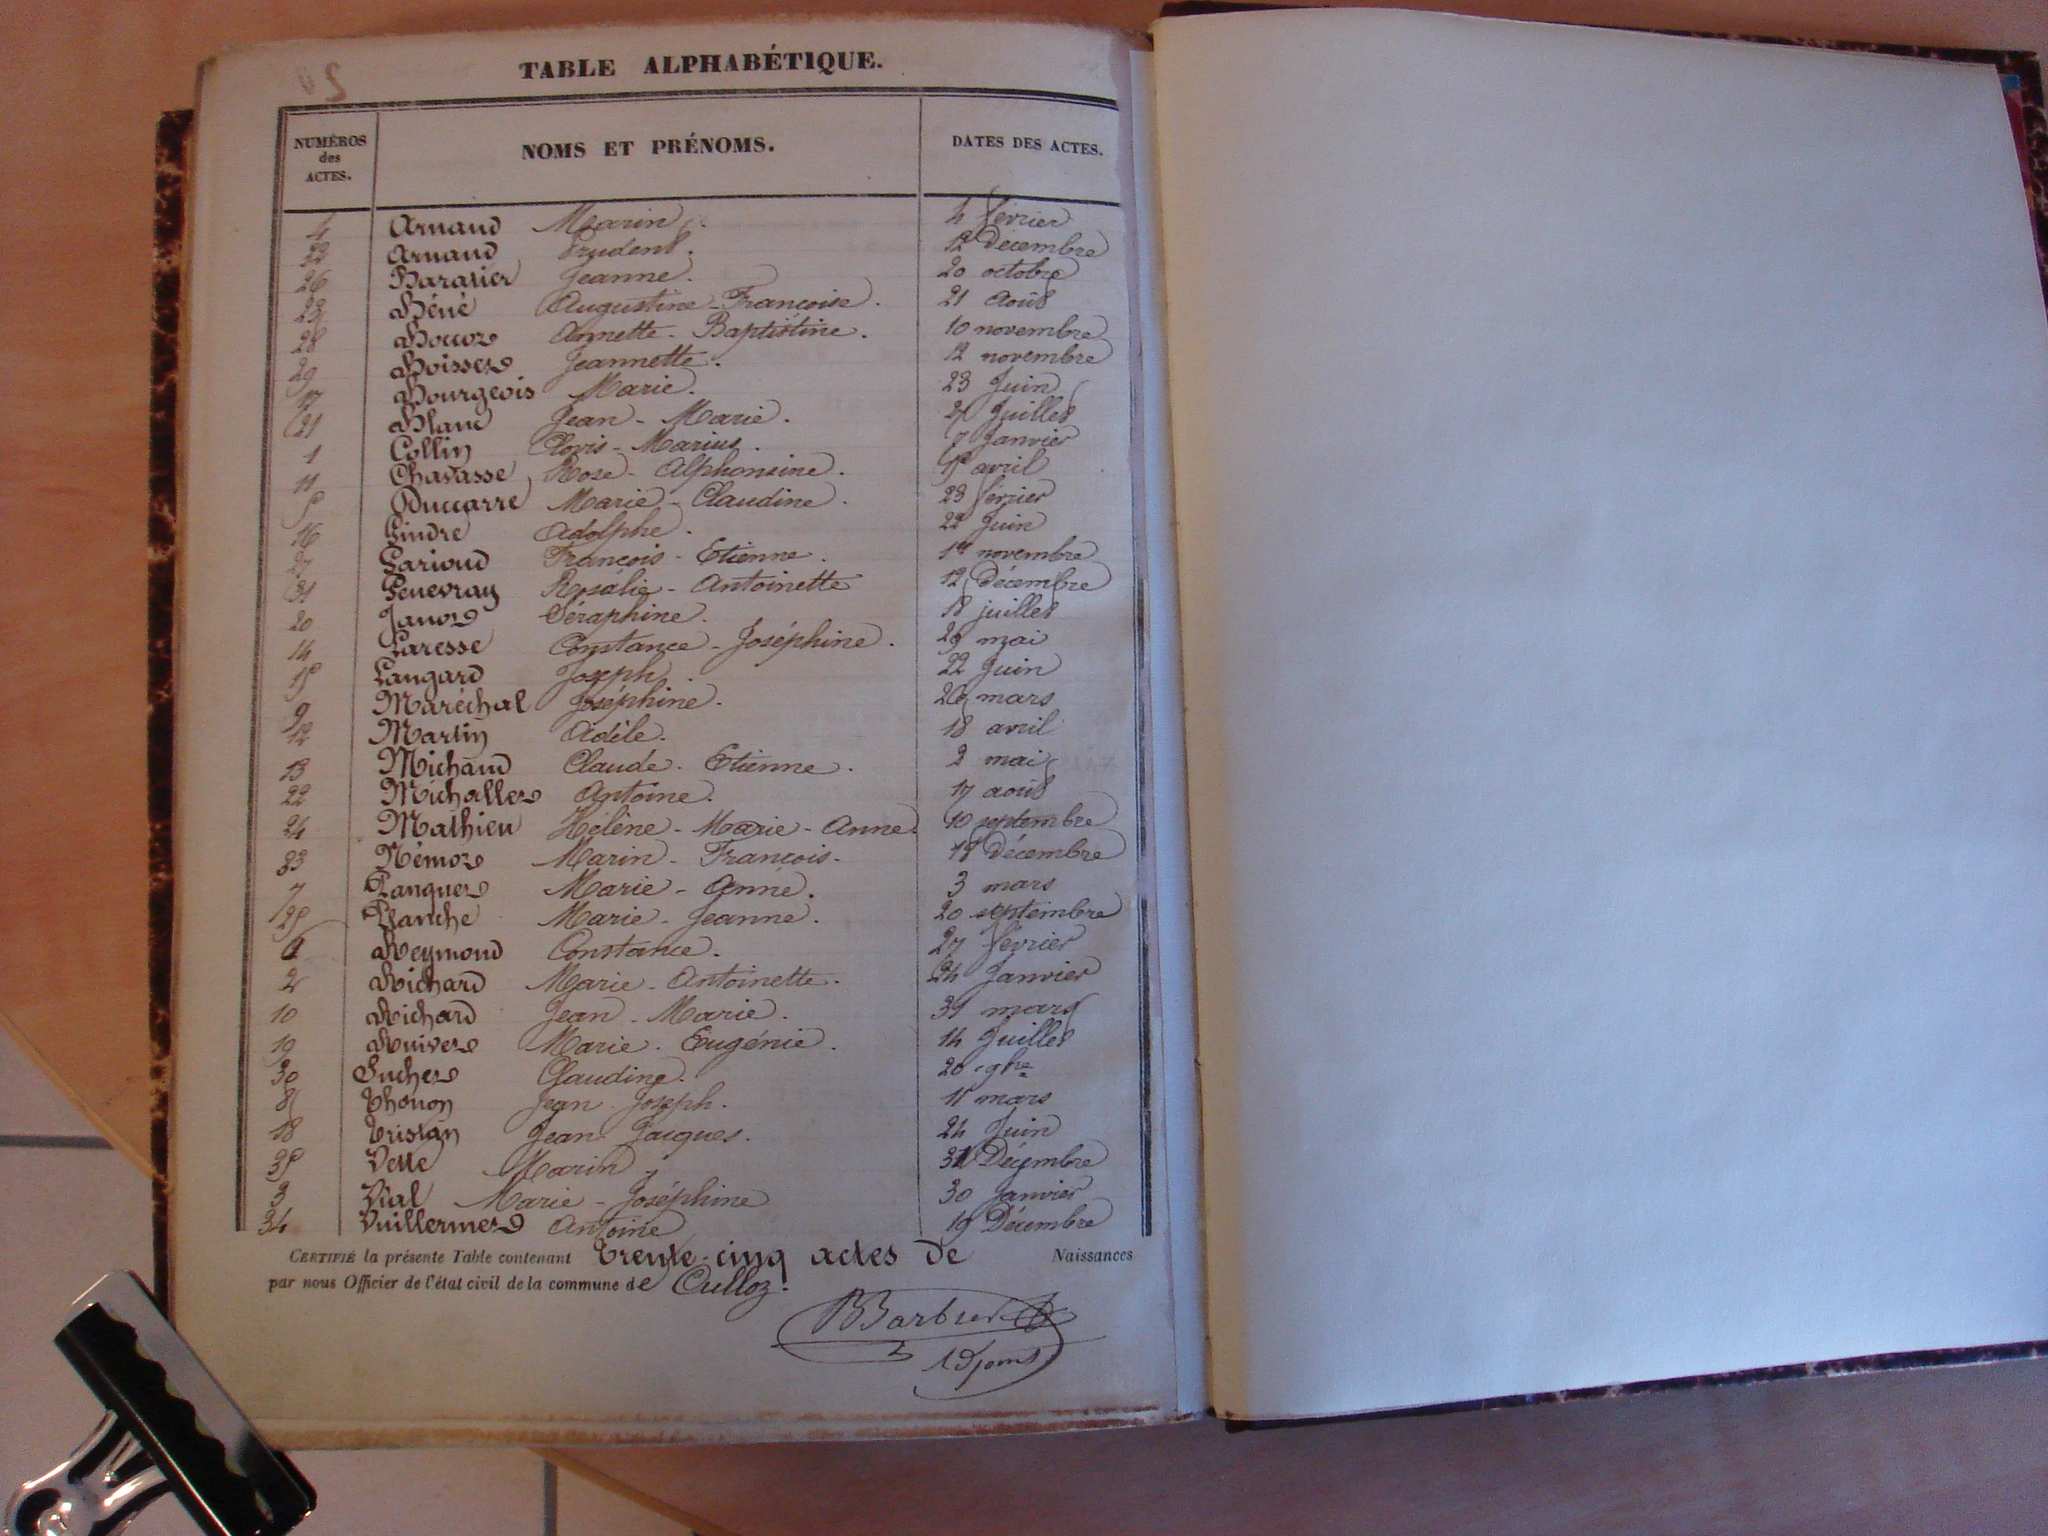 TABLE ALPHABÉTIQUE.
NUMÉROS des ACTES. NOMS ET PRÉNOMS. DATES DES ACTES.
4 Arnaud Marin 4 février
32 Arnaud Prudent. 12 Décembre
26 Baratier Jeanne. 20 octobre
23 Béné Augustine-Françoise. 21 août
28 Boccoz Annette-Baptistine. 10 novembre
29 Boisset Jeannette. 12 novembre
17 Bourgeois Marie. 23 Juin
21 Blanc Jean-Marie. Juillet
1 Collin Clovis-Marius. 7 Janvier
11 Chavasse Rose-Alphonsine. avril
5 Duccarre Marie-Claudine. 23 février
16 Gindre Adolphe. 22 Juin
27 Garioud François-Etienne. 1er novembre
31 Genevray Rosalie-Antoinette 12 Décembre
20 Janot Séraphine. 18 juillet
14 Laresse Constance-Joséphine. 29 mai
15 Langard Joseph. 22 Juin
9 Maréchal Joséphine. 26 mars
12 Martin Adèle. 18 avril
13 Michaud Claude-Etienne. 2 mai
22 Michallet Antoine. 17 août
24 Mathieu Hélène-Marie-Anne. 10 septembre
33 Némoz Marin-François. 18 Décembre
7 Panguet Marie-Anne. 3 mars
25 Planche Marie-Jeanne. 20 septembre
6 Reymond Constance. 27 février
2 Richard Marie-Antoinette. 24 Janvier
10 Richard Jean-Marie. 31 mars
19 Ruivet Marie-Eugénie. 14 Juillet
30 Suchet Claudine. 20 9bre
8 Thonon Jean-Joseph. 11 mars
18 Tristan Jean-Jacques. 24 Juin
35 Vette Marin 31 Décembre
3 Vial Marie-Joséphine 30 Janvier
34 Vuillermet Antoine 19 Décembre
CERTIFIÉ la présente Table contenant Trente-cinq actes de Naissances
par nous Officier de l'état civil de la commune de Culloz.
BBarbier
Adjoint